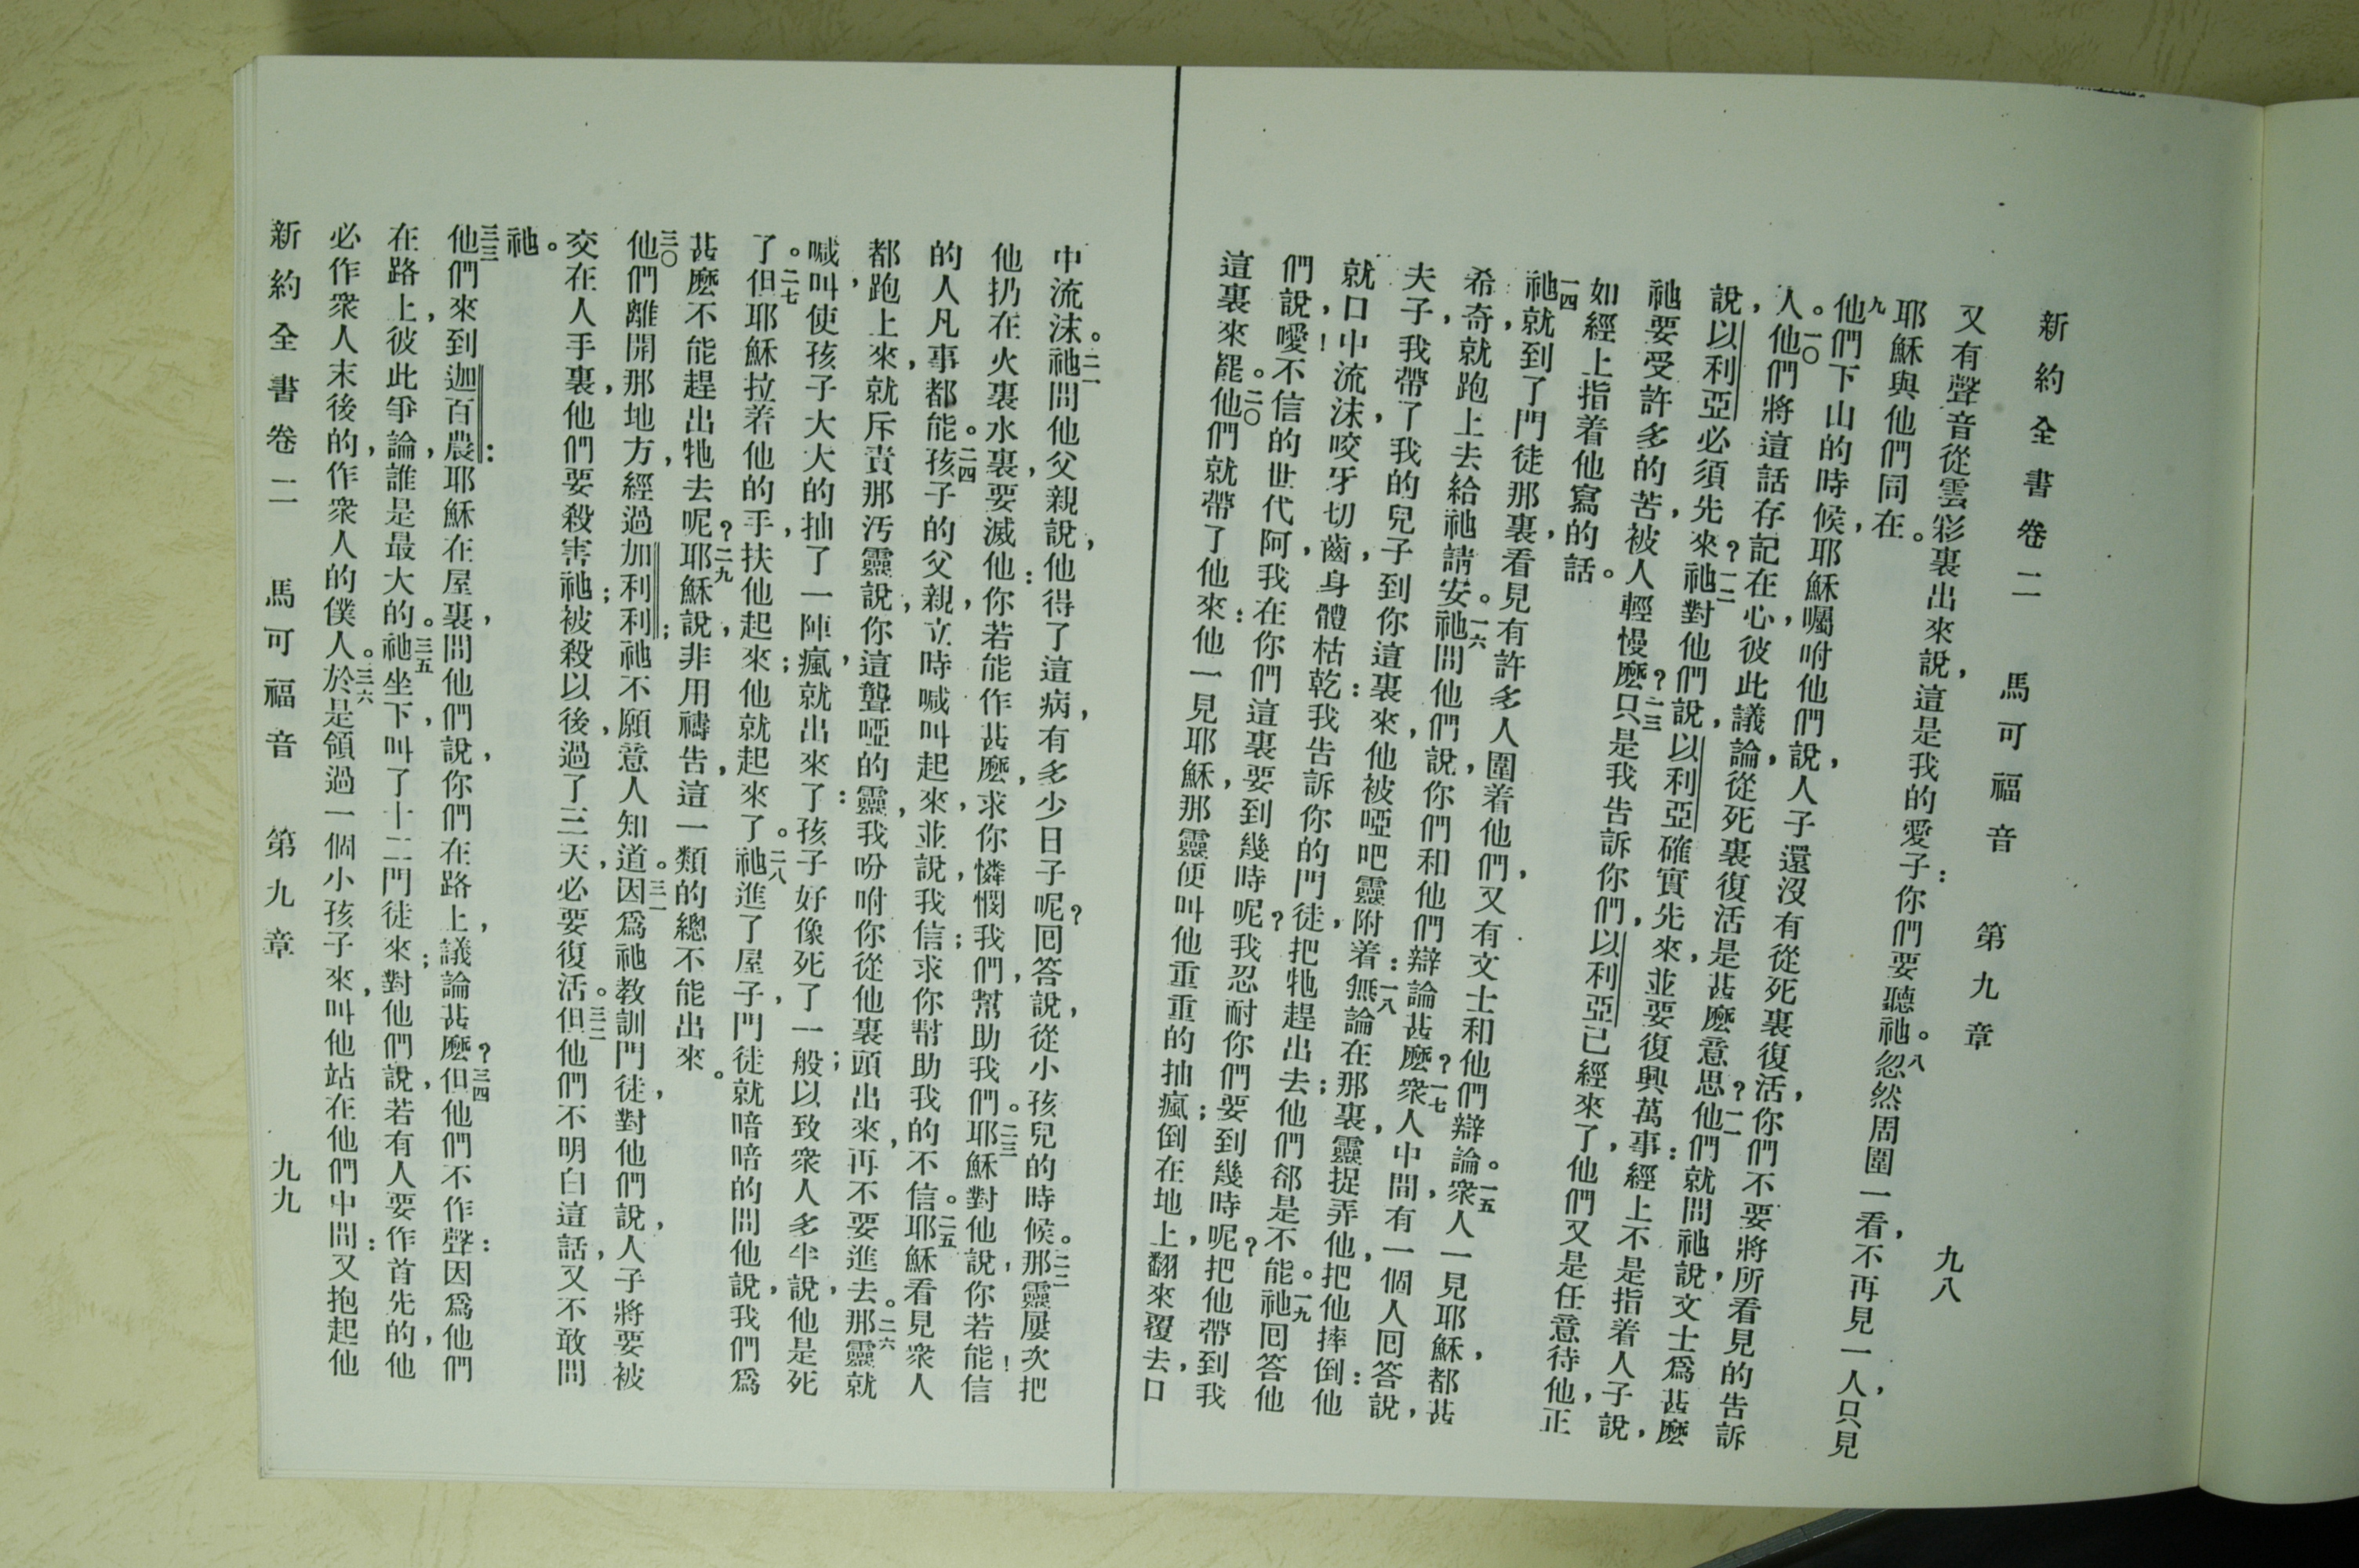 新約全書卷二　馬可福音　第九章　九八
又有聲音從雲彩裏出來說，這是我的愛子：你們要聽祂。八忽然周圍一看，不再見一人，只見
耶穌與他們同在。
九他們下山的時候，耶穌囑咐他們，說，人子還沒有從死裏復活，你們不要將所看見的告訴
人。一〇他們將這話存記在心，彼此議論，從死裏復活是甚麽意思？一一他們就問祂，說文士爲甚麽
說，以利亞必須先來？一二祂對他們說，以利亞確實先來，並要復興萬事：經上不是指着人子說，
祂要受許多的苦，被人輕慢麽？一三只是我告訴你們，以利亞已經來了，他們又是任意待他，正
如經上指着他寫的話。
一四祂就到了門徒那裏，看見有許多人圍着他們，又有文士和他們辯論。一五衆人一見耶穌，都甚
希奇，就跑上去給祂請安。一六祂問他們，說你們和他們辯論甚麽？一七衆人，中間有一個人囘答說，
夫子，我帶了我的兒子到你這裏來，他被啞吧靈附着：一八無論在那裏，靈捉弄他，把他摔倒：他
就口中流沫，咬牙切齒，身體枯乾：我告訴你的門徒，把牠趕出去；他們卻是不能。一九祂囘答他
們，說噯！不信的世代阿，我在你們這裏要到幾時呢？我忍耐你們要到幾時呢？把他帶到我
這裏來罷。二〇他們就帶了他來：他一見耶穌，那靈便叫他重重的抽瘋；倒在地上，翻來覆去，口
中流沫。二一祂問他父親，說，他得了這病，有多少日子呢？囘答說，從小孩兒的時候。二二那靈屢次把
他扔在火裏水裏，要滅他：你若能作甚麽，求你憐憫我們，幫助我們。二三耶穌對他說，你若能信！
的人凡事都能。二四孩子的父親，立時喊叫起來，並說，我信；求你幫助我的不信。二五耶穌看見衆人
都跑上來，就斥責那汚靈，說，你這聾啞的靈，我吩咐你從他裏頭出來，再不要進去。二六那靈就
喊叫，使孩子大大的抽了一陣瘋，就出來了：孩子好像死了一般；以致衆人多半說，他是死
了。二七但耶穌拉着他的手，扶他起來；他就起來了。二八祂進了屋子，門徒就暗暗的問他，說我們爲
甚麽不能趕出牠去呢？二九耶穌說，非用禱告，這一類的總不能出來。
三〇他們離開那地方，經過加利利；祂不願意人知道。三一因爲祂教訓門徒，對他們說，人子將要被
交在人手裏，他們要殺害祂；被殺以後，過了三天，必要復活。三二但他們不明白這話，又不敢問
祂。
三三他們來到迦百農：耶穌在屋裏，問他們，說你們在路上，議論甚麽？三四但他們不作聲：因爲他們
在路上，彼此爭論，誰是最大的。三五祂坐下，叫了十二門徒來；對他們說，若有人要作首先的，他
必作衆人末後的，作衆人的僕人。三六於是領過一個小孩子來，叫他站在他們中間：又抱起他
新約全書卷二　馬可福音　第九章　九九